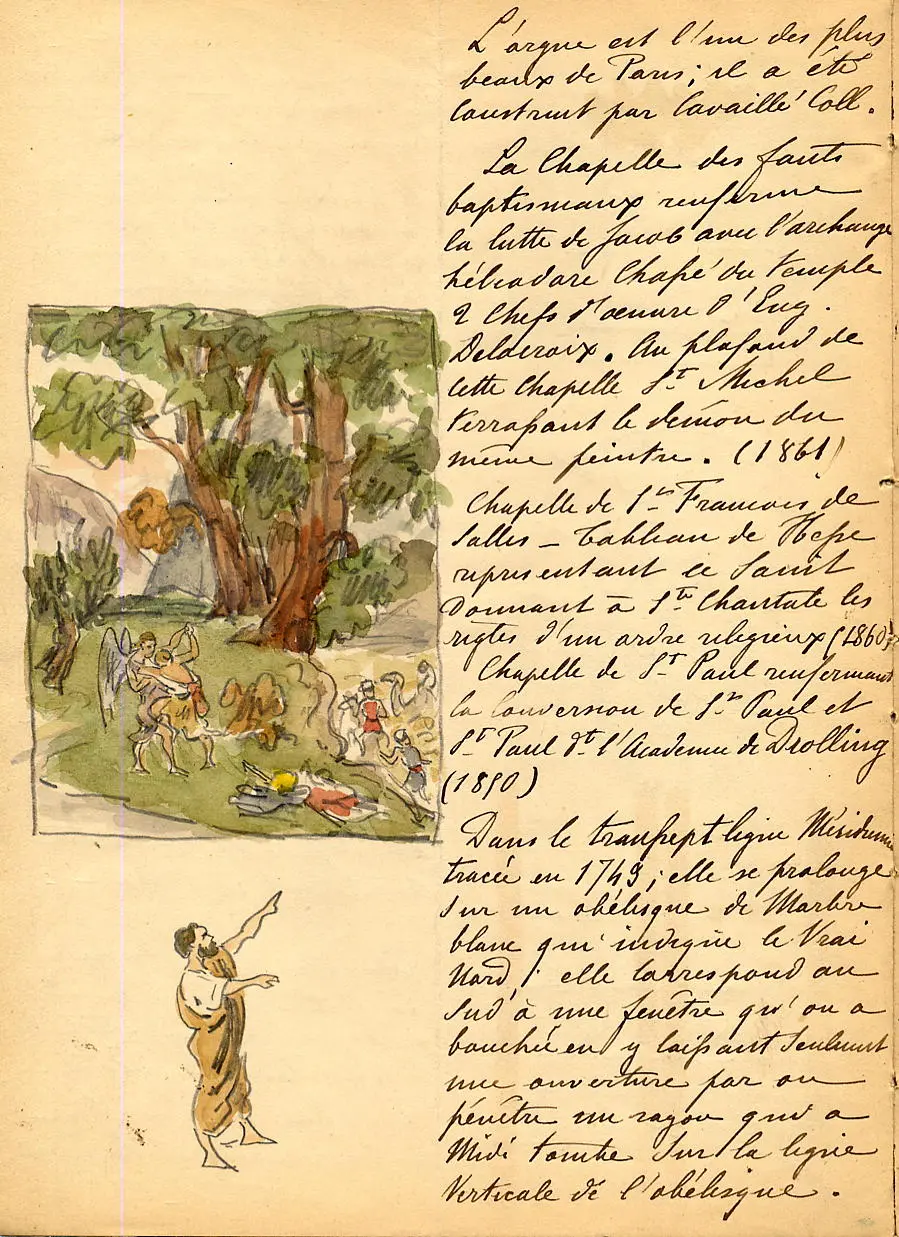 L'orgue est l'un des plus
beaux de Paris; il a été
Construit par Cavaillé Coll.
La Chapelle des fonts
baptismaux renferme
la lutte de Jacob avec l'archange
héliodore Chassé du temple
2 Chefs d'œuvre d'Eug.
Delacroix. Au plafond de
cette Chapelle St Michel
terrassant le démon du
même peintre. (1861)
Chapelle de St Francois de
Salles — Tableau de Hesse
représentant ce Saint
donnant à Ste Chantale les
règles d'un ordre religieux (1860)
Chapelle de St Paul renfermant
la Conversion de St Paul et
St Paul dt l'Academie de Drolling
(1850)
Dans le transsept ligne Méridienne
tracée en 1743; elle se prolonge
sur un obélisque de Marbre
blanc qui indique le Vrai
Nord; elle correspond au
Sud à une fenêtre qu'on a
bouchée en y laissant seulement
une ouverture par ou
pénètre un rayon qui a
Midi tombe sur la ligne
Verticale de l'obélisque.